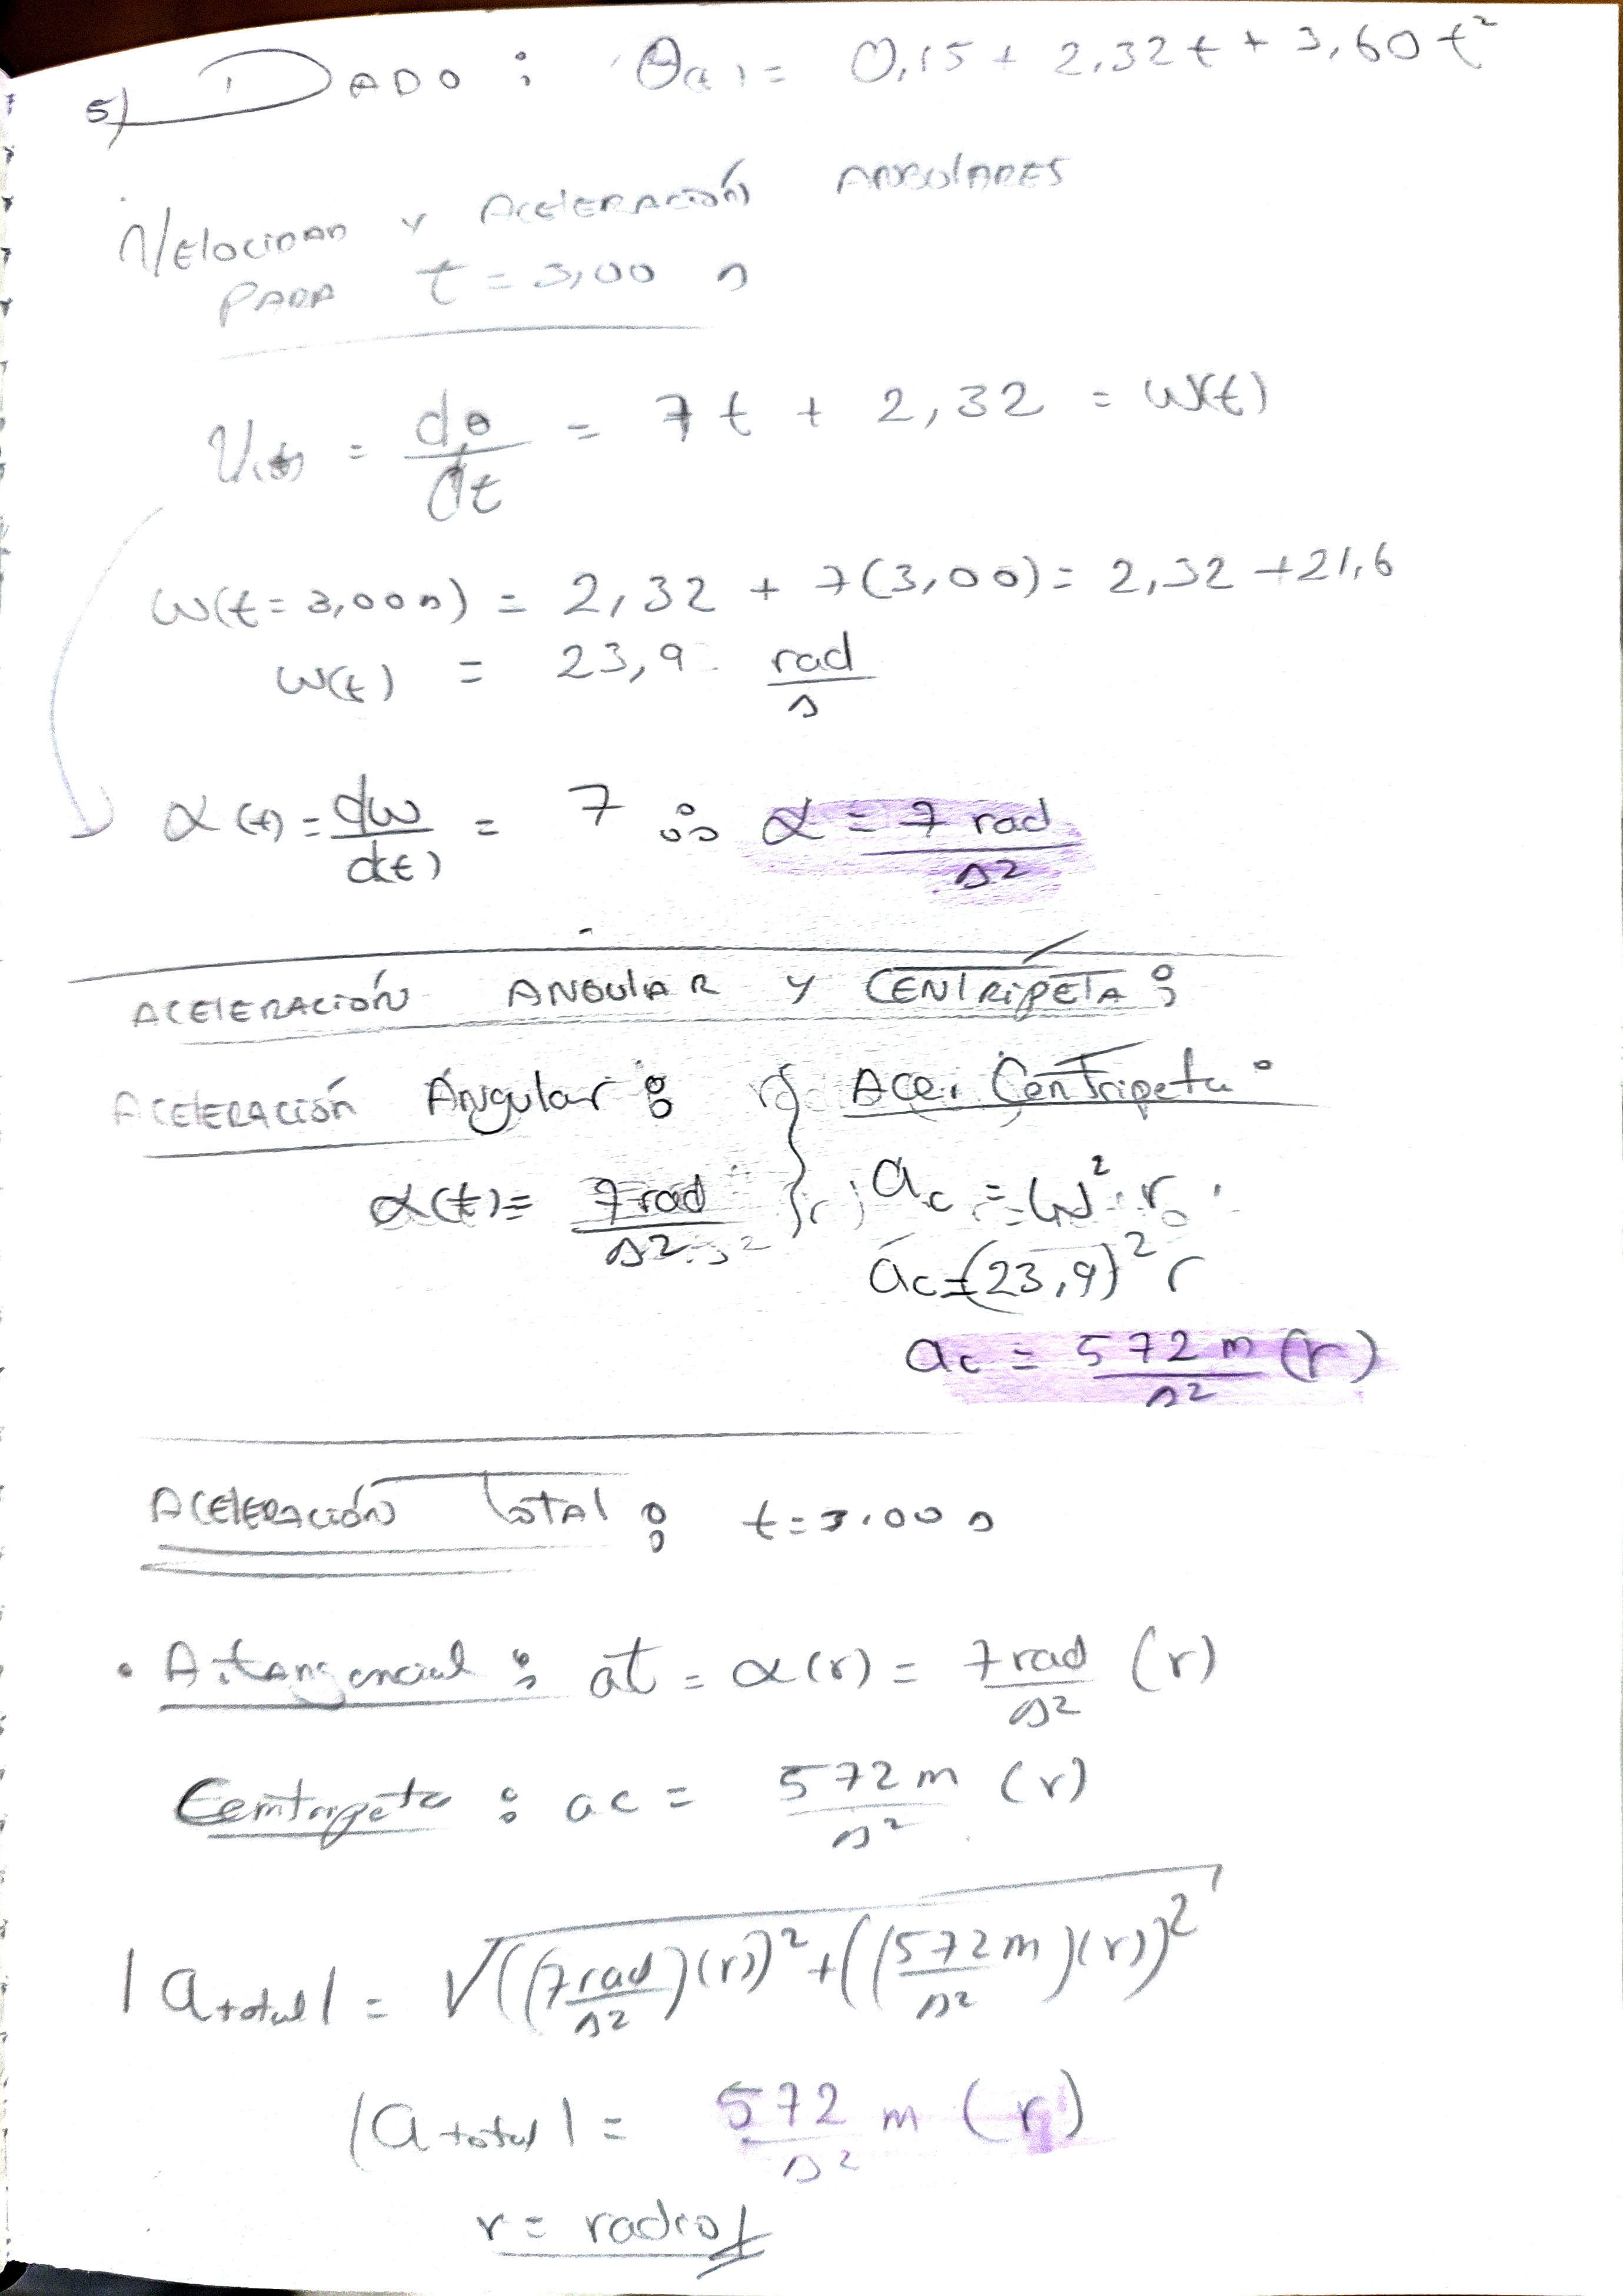 5) DADO : θ(t) = 0,15 + 2,32t + 3,60t²
Velocidad y Aceleración Angulares
para t = 3,00 s
V(t) = dθ/dt = 7t + 2,32 = ω(t)
ω(t = 3,00s) = 2,32 + 7(3,00) = 2,32 + 21,6
ω(t) = 23,9 rad/s
α(t) = dω/d(t) = 7 ∴ α = 7 rad/s²
ACELERACIÓN ANGULAR y CENTRIPETA :
ACELERACIÓN Angular : Ace. Centripeta :
α(t) = 7 rad/s² ac = ω² · r
ac = (23,9)² r
ac = 572 m/s² (r)
ACELERACIÓN TOTAL : t = 3.00 s
• A. tangencial : at = α(r) = 7 rad/s² (r)
Centripeta : ac = 572 m/s² (r)
|a total| = √((7 rad/s²)(r))² + ((572 m/s²)(r))²
|a total| = 572 m/s² (r)
r = radio